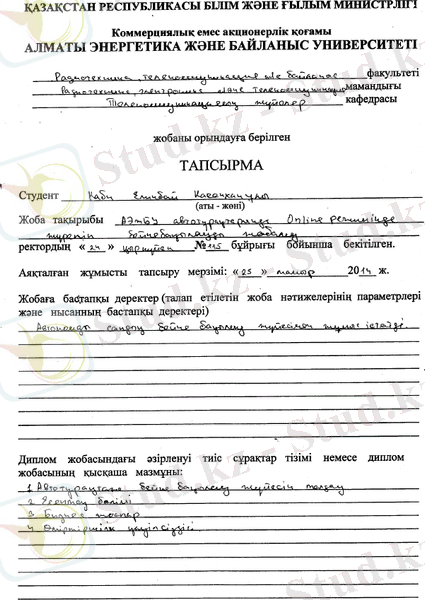 ҚАЗАҚСТАН РЕСПУБЛИКАСЫ БІЛІМ ЖӘНЕ ҒЫЛЫМ МИНИСТРЛІГІ
Коммерциялық емес акционерлік қоғамы
АЛМАТЫ ЭНЕРГЕТИКА ЖӘНЕ БАЙЛАНЫС УНИВЕРСИТЕТІ
Радиотехника, телекоммуникация және байланыс факультеті
Радиотехника, электроника және телекоммуникация мамандығы
Телекоммуникациялық жүйелер кафедрасы
жобаны орындауға берілген
ТАПСЫРМА
Студент Қаби
(аты - жөні)
Жоба тақырыбы АЭжБУ Online режимінде
бейнебақылауды жобалау
ректордың « 24 » қыркүйек № 115 бұйрығы бойынша бекітілген.
Аяқталған жұмысты тапсыру мерзімі: « 25 » мамыр 2014 ж.
Жобаға бастапқы деректер (талап етілетін жоба нәтижелерінің параметрлері
және нысанның бастапқы деректері)
сандық бейне бақылау жүйесімен жұмыс істейді.
Диплом жобасындағы әзірленуі тиіс сұрақтар тізімі немесе диплом
жобасының қысқаша мазмұны:
1 Автотұрақтағы бейне бақылау жүйесін талдау
2 Есептеу бөлімі
3 Бизнес жоспар
4 Өміртіршілік қауіпсіздігі
Stud.kz - Stud.kz